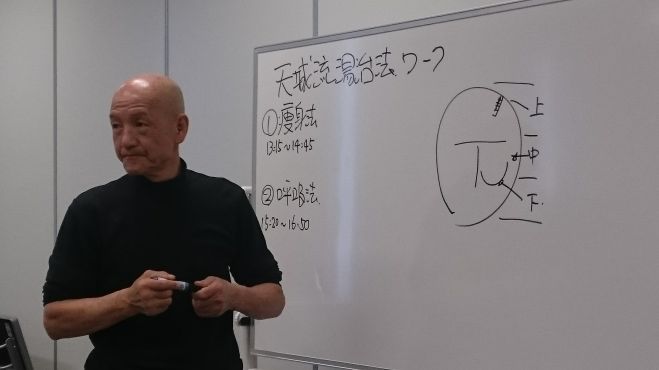 天城流湯治法 ワーク
①痩身法
13:15～14:45
②呼吸法
15:20～16:50
上
中
下